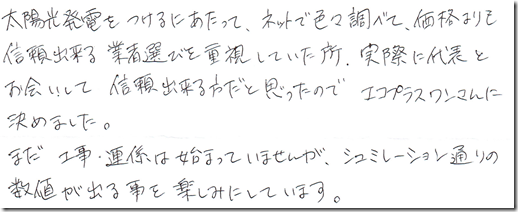 太陽光発電をつけるにあたって、ネットで色々調べて、価格よりも
信頼出来る業者選びを重視していた所、実際に代表と
お会いして 信頼出来る方だと思ったので エコプラスワンさんに
決めました。
まだ 工事・連係は始まっていませんが、シュミレーション通りの
数値が出る事を楽しみにしています。